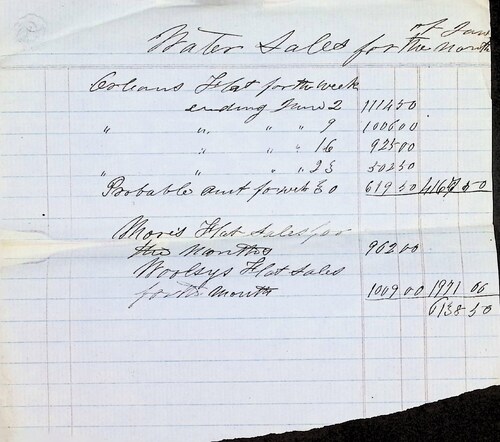 of June
Water Sales for the Month
Orleans Flat for the week
ending June 2 1114 50
" " " " 9 1006 00
" " " 16 925 00
" " " " 23 502 50
Probable amt for week 30 619 50 4167 50
Moors Flat sales for
the Month 962 00
Woolsys Flat sales
for the Month 1009 00 1971 00
6138 50